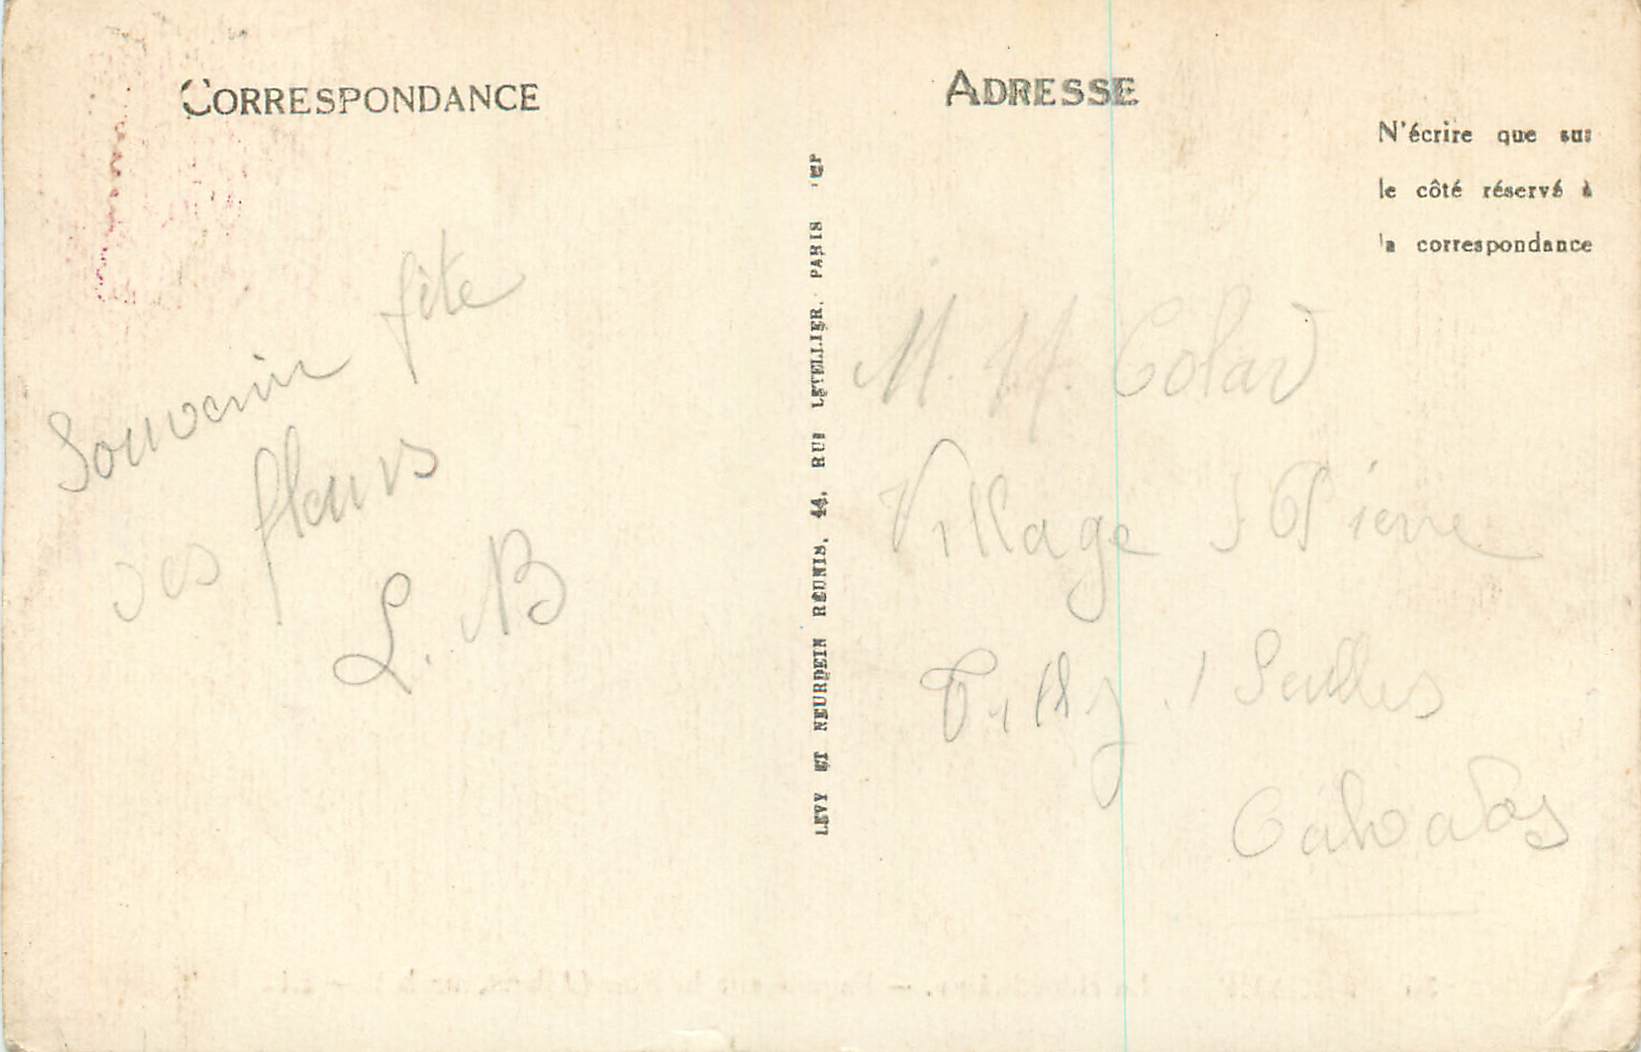 CORRESPONDANCE
Souvenir fête
des fleurs
L. B
LEVY ET NEURDEIN RÉUNIS, 44, RUE LETELLIER, PARIS IMP
ADRESSE
N'écrire que sur
le côté réservé à
la correspondance
M. H. Colard
Village St Pierre
Tilly s/ Seulles
Calvados